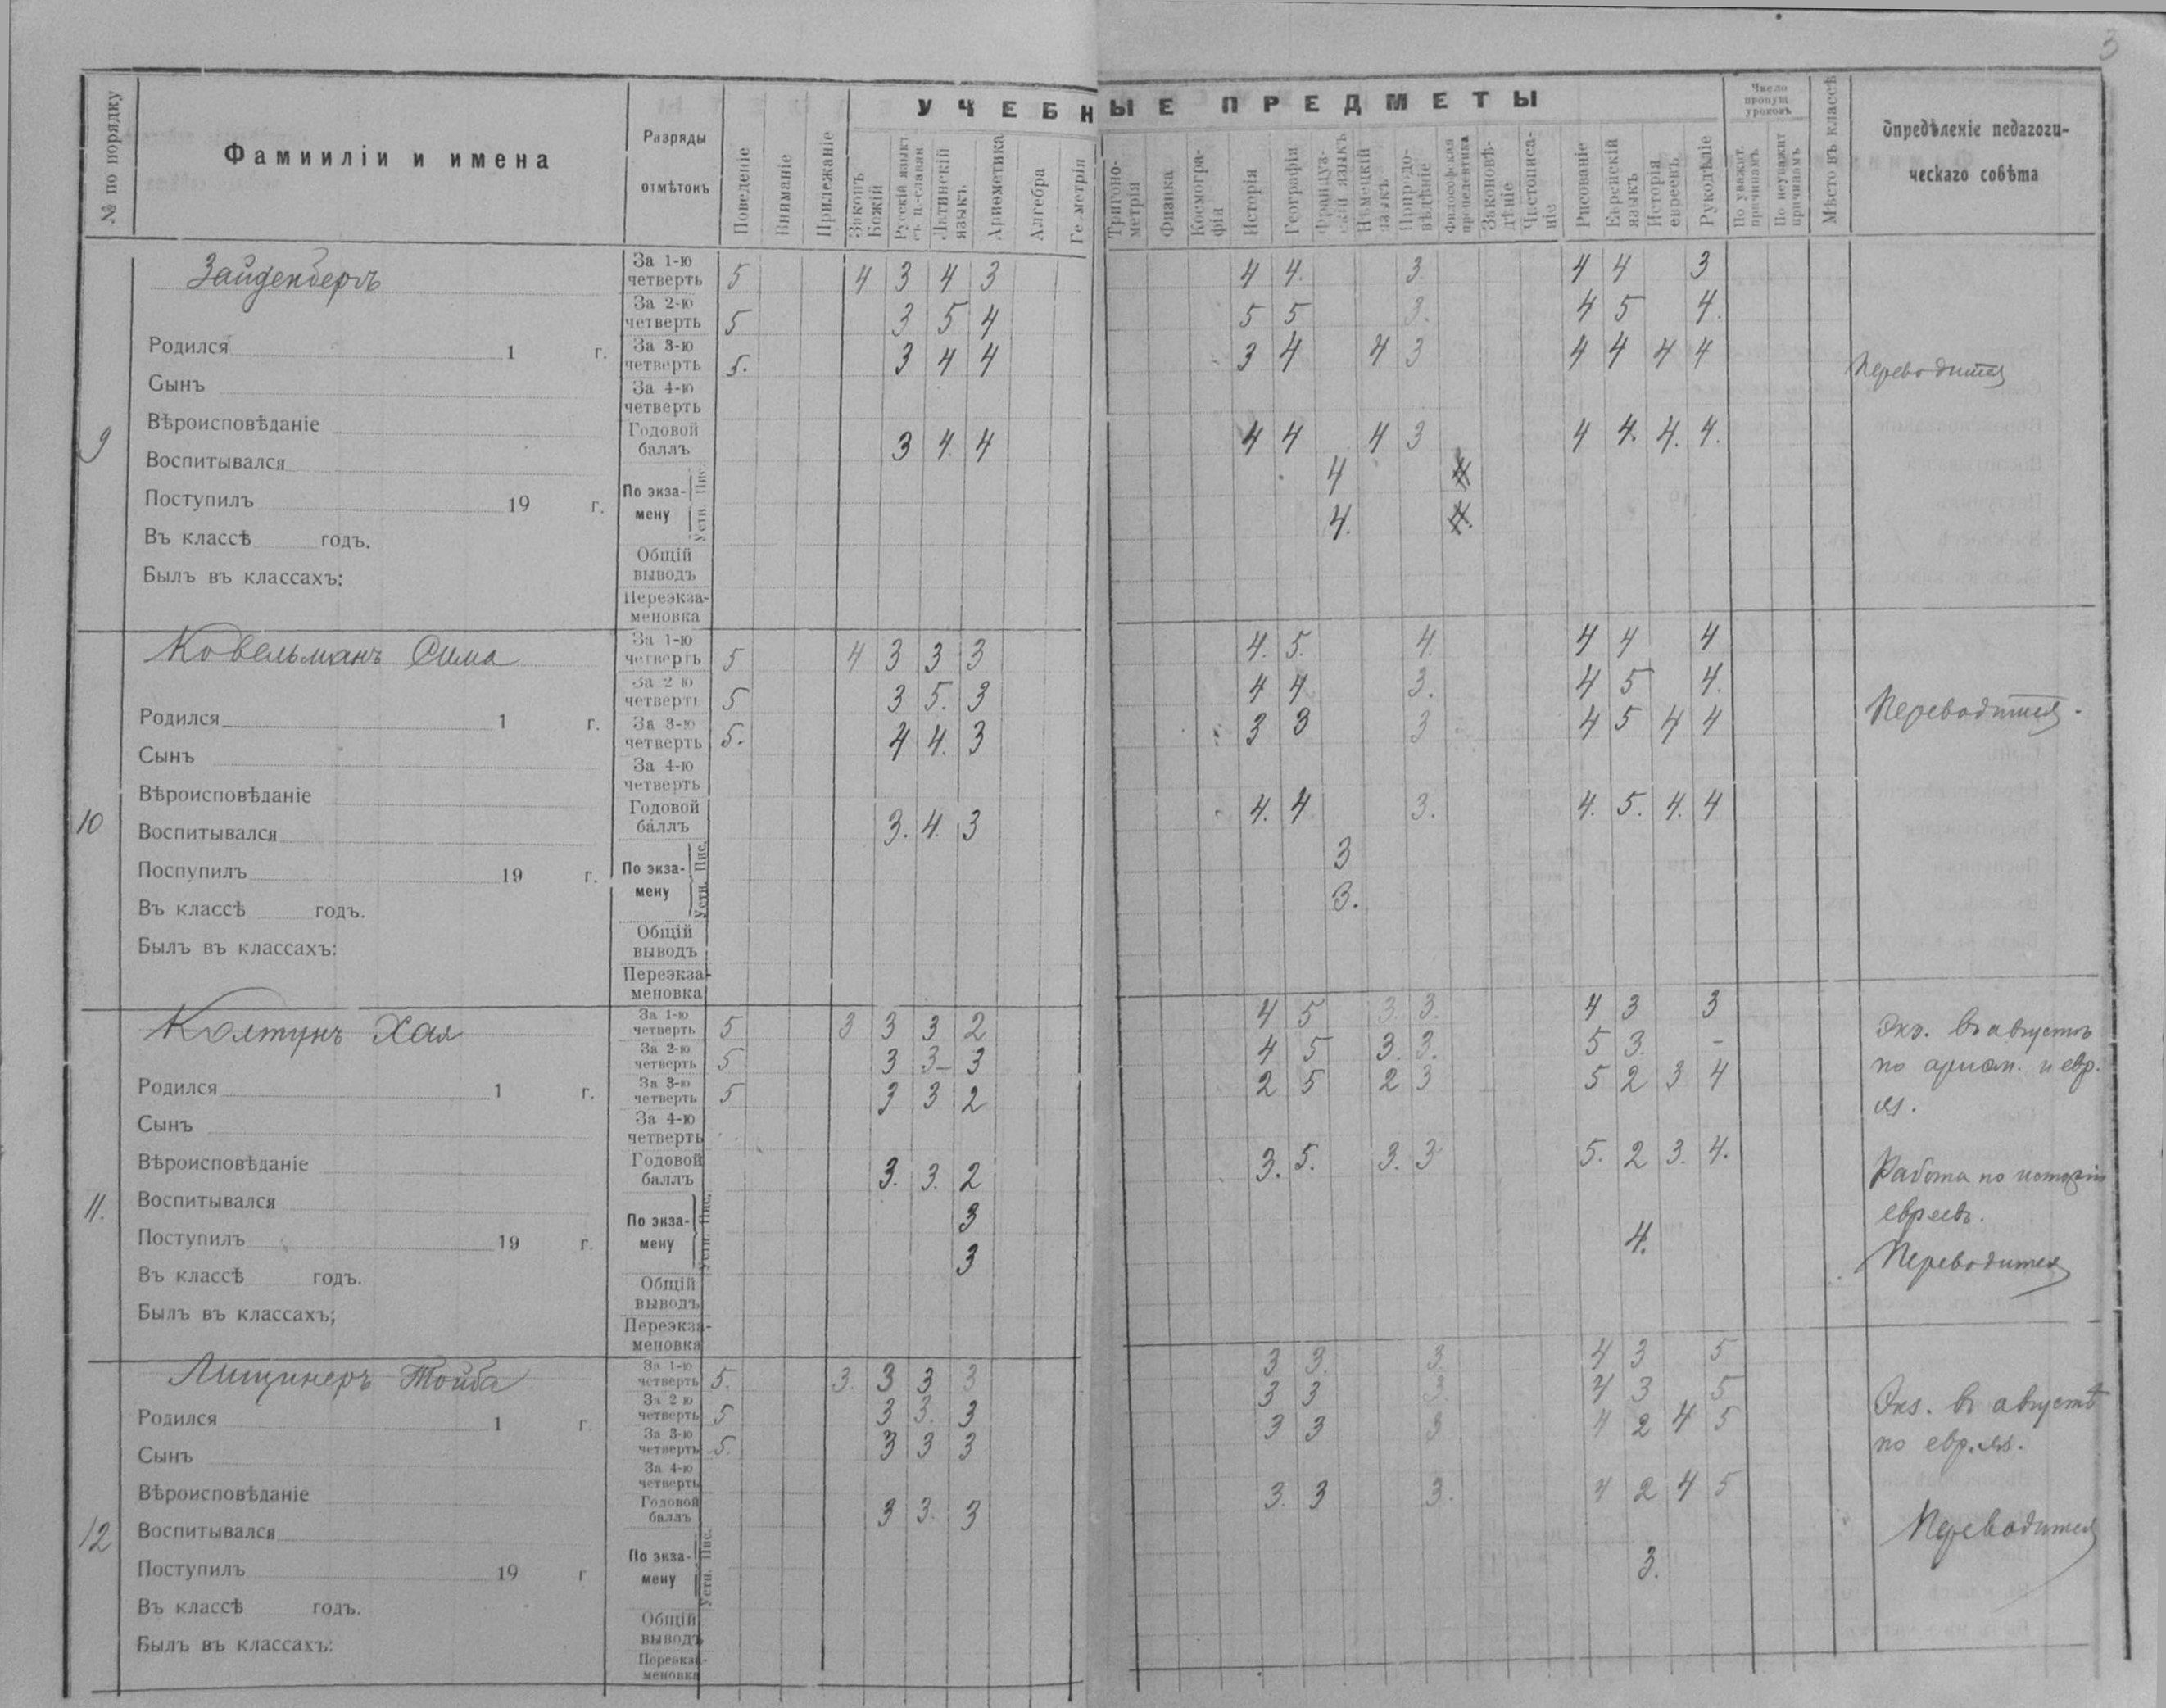 3
№ по порядку
Фамииліи и имена
Разряды отмѣтокъ
Поведеніе
Вниманіе
Прилежаніе
УЧЕБНЫЕ ПРЕДМЕТЫ
Законъ Божій
Русскій языкъ съ ц.-славян
Латинскій языкъ
Ариѳметика
Алгебра
Геометрія
Тригоно-метрія
Физика
Космогра-фія
Исторія
Географія
Француз-скій языкъ
Нѣмецкій языкъ
Природо-вѣдѣніе
Философская пропедевтика
Законовѣ-дѣніе
Чистописа-ніе
Рисованіе
Еврейскій языкъ
Исторія евреевъ
Рукодѣліе
Число пропущ. уроковъ
По уважит. причинамъ
По неуважит причинамъ
Мѣсто въ классѣ
Опредѣленіе педагоги-
ческаго совѣта
9
Зайденбергъ
Родился 1 г.
Сынъ
Вѣроисповѣданіе
Воспитывался
Поступилъ 19 г.
Въ классѣ годъ.
Былъ въ классахъ:
За 1-ю четверть 5 4 3 4 3 4 4. 3. 4 4 3
За 2-ю четверть 5 3 5 4 5 5 3. 4 5 4.
За 3-ю четверть 5. 3 4 4 3 4 4 3 4 4 4 4
За 4-ю четверть
Годовой баллъ 3 4. 4 4 4 4 3 4 4. 4. 4.
По экза-мену Пис. 4 4
Устн. 4. 4.
Общій выводъ
Переэкза-меновка
Переводится
10
Ковельманъ Сима
Родился 1 г.
Сынъ
Вѣроисповѣданіе
Воспитывался
Поспупилъ 19 г.
Въ классѣ годъ.
Былъ въ классахъ:
За 1-ю четверть 5 4 3 3 3 4. 5. 4. 4 4 4
За 2 ю четверть 5 3 5. 3 4 4 3. 4 5 4.
За 3-ю четверть 5. 4 4. 3 3 3 3 4 5 4 4
За 4-ю четверть
Годовой баллъ 3. 4. 3 4. 4 3. 4. 5. 4. 4
По экза-мену Пис. 3
Устн. 3.
Общій выводъ
Переэкза-меновка
Переводится.
11.
Колтунъ Хая
Родился 1 г.
Сынъ
Вѣроисповѣданіе
Воспитывался
Поступилъ 19 г.
Въ классѣ годъ.
Былъ въ классахъ;
За 1-ю четверть 5 3 3 3 2 4 5 3 3. 4 3 3
За 2-ю четверть 5 3 3- 3 4 5 3. 3. 5 3. -
За 3-ю четверть 5 3 3 2 2 5 2 3 5 2 3 4
За 4-ю четверть
Годовой баллъ 3. 3. 2 3. 5. 3. 3 5. 2 3. 4.
По экза-мену Пис. 3
Устн. 3 4.
Общій выводъ
Переэкза-меновка
Экз. въ августѣ
по ариѳм. и евр.
яз.
Работа по исторіи
евреевъ.
Переводится
12
Лищинеръ Тойба
Родился 1 г
Сынъ
Вѣроисповѣданіе
Воспитывался
Поступилъ 19 г
Въ классѣ годъ.
Былъ въ классахъ:
За 1-ю четверть 5. 3. 3 3 3 3 3. 3. 4 3 5
За 2 ю четверть 5 3 3. 3 3 3 3. 4 3 5
За 3-ю четверть 5. 3 3 3 3 3 3 4 2 4 5
За 4-ю четверть
Годовой баллъ 3 3. 3 3. 3 3. 4 2 4 5
По экза-мену Пис.
Устн. 3.
Общій выводъ
Переэкза-меновка
Экз. въ августѣ
по евр. яз.
Переводится